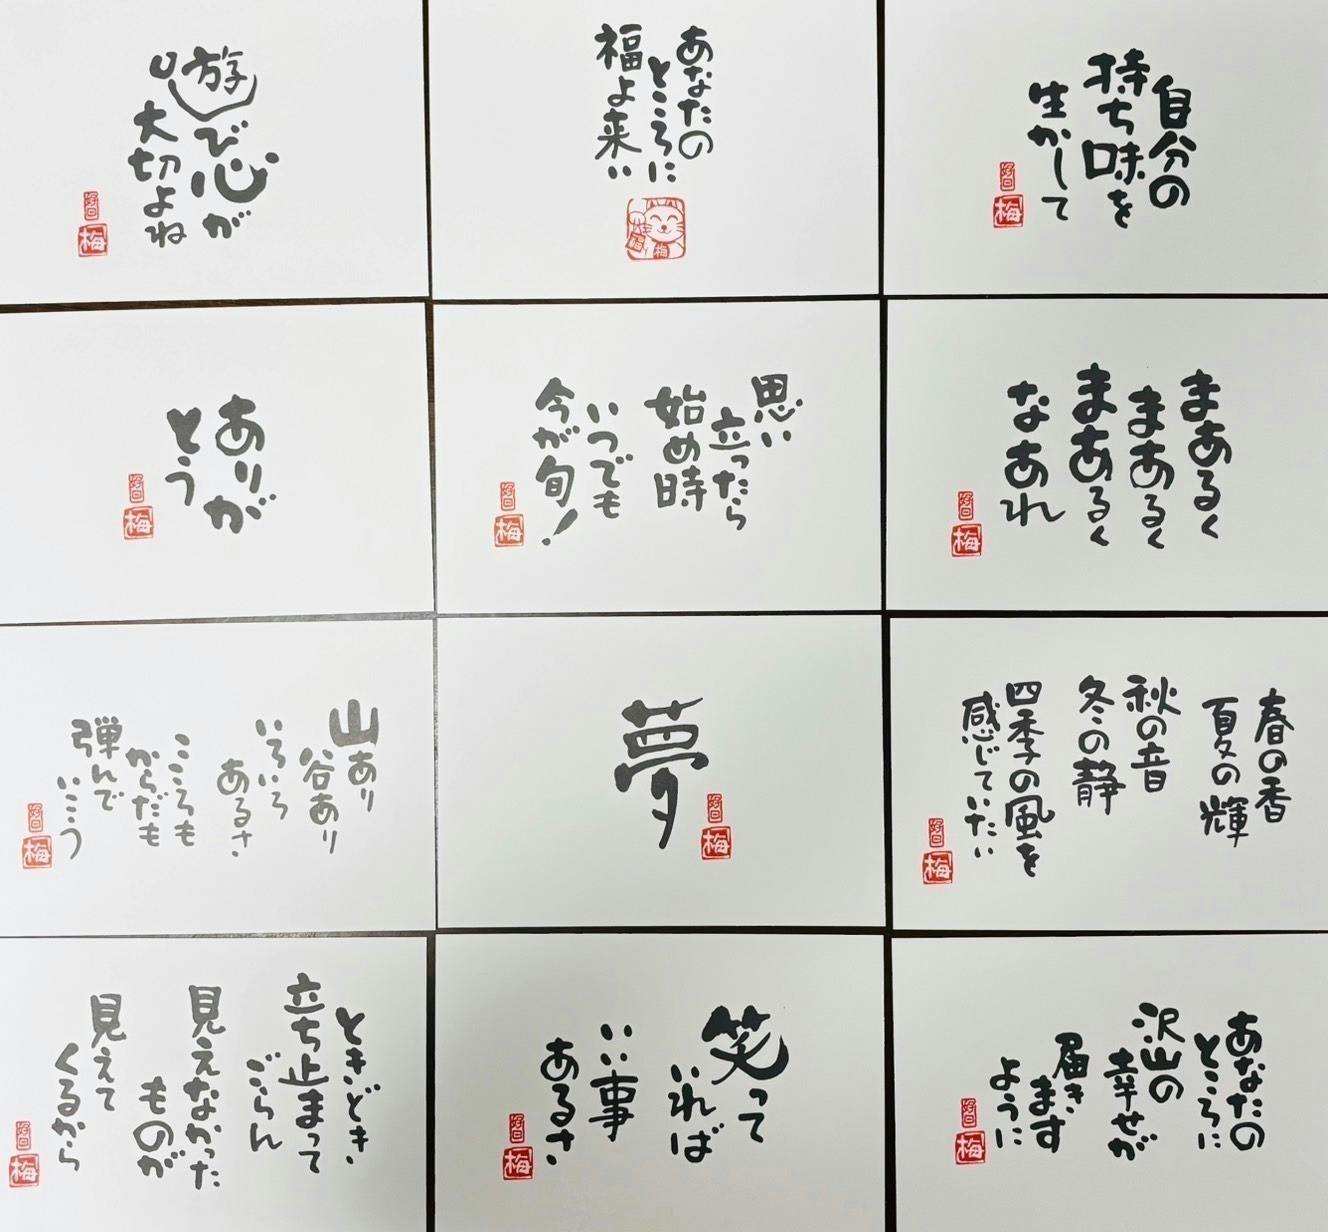 遊び心が
大切よね
梅
あなたの
ところに
福よ来い
福
梅
自分の
持ち味を
生かして
梅
ありが
とう
梅
思い
立ったら
始め時
いつでも
今が旬!
梅
まあるく
まあるく
まあるく
なあれ
梅
山あり
谷あり
いろいろ
あるさ
こころも
からだも
弾んで
いこう
梅
夢
梅
春の香
夏の輝
秋の音
冬の静
四季の風を
感じていたい
梅
ときどき
立ち止まって
ごらん
見えなかった
ものが
見えて
くるから
梅
笑って
いれば
いい事
あるさ
梅
あなたの
ところに
沢山の
幸せが
届き
ます
ように
梅